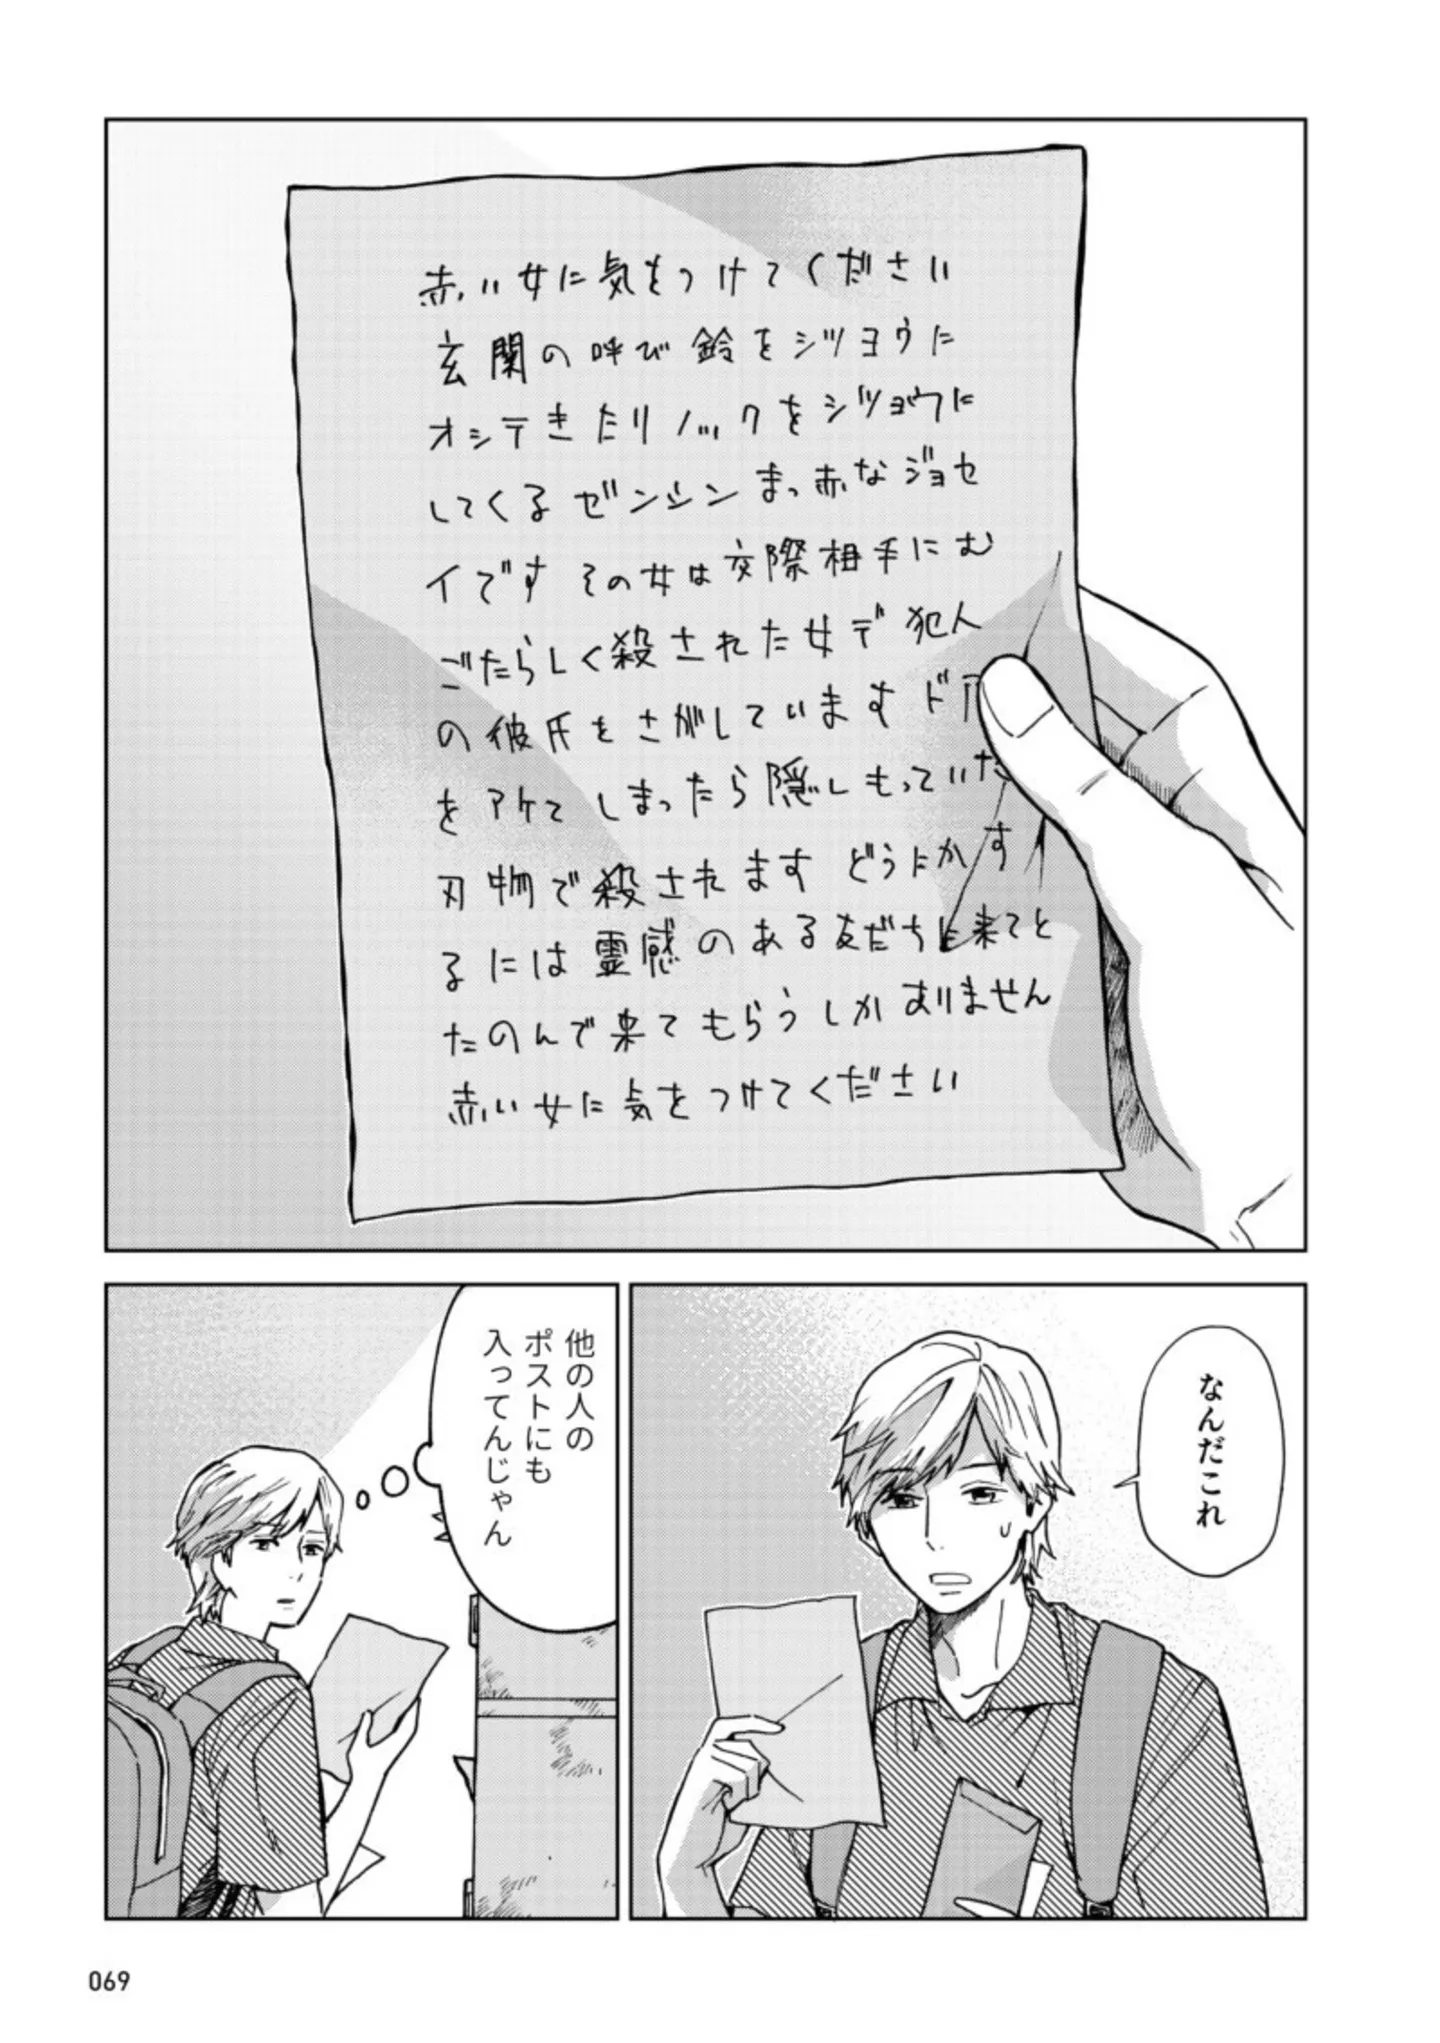 赤い女に気をつけてください
玄関の呼び鈴をシツヨウに
オシテきたりノックをシツョウに
してくるゼンシンまっ赤なジョセ
イです その女は交際相手にむ
ごたらしく殺された女デ犯人
の彼氏をさがしています ドア
をアケてしまったら隠しもっていた
刃物で殺されます どうにかす
るには霊感のある友だちに来てと
たのんで来てもらうしかありません
赤い女に気をつけてください
なんだこれ
他の人の
ポストにも
入ってんじゃん
069